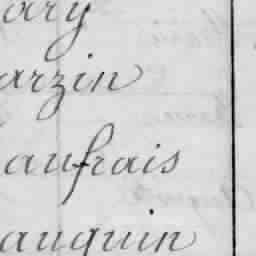 ary
arzin
aufrais
auquin